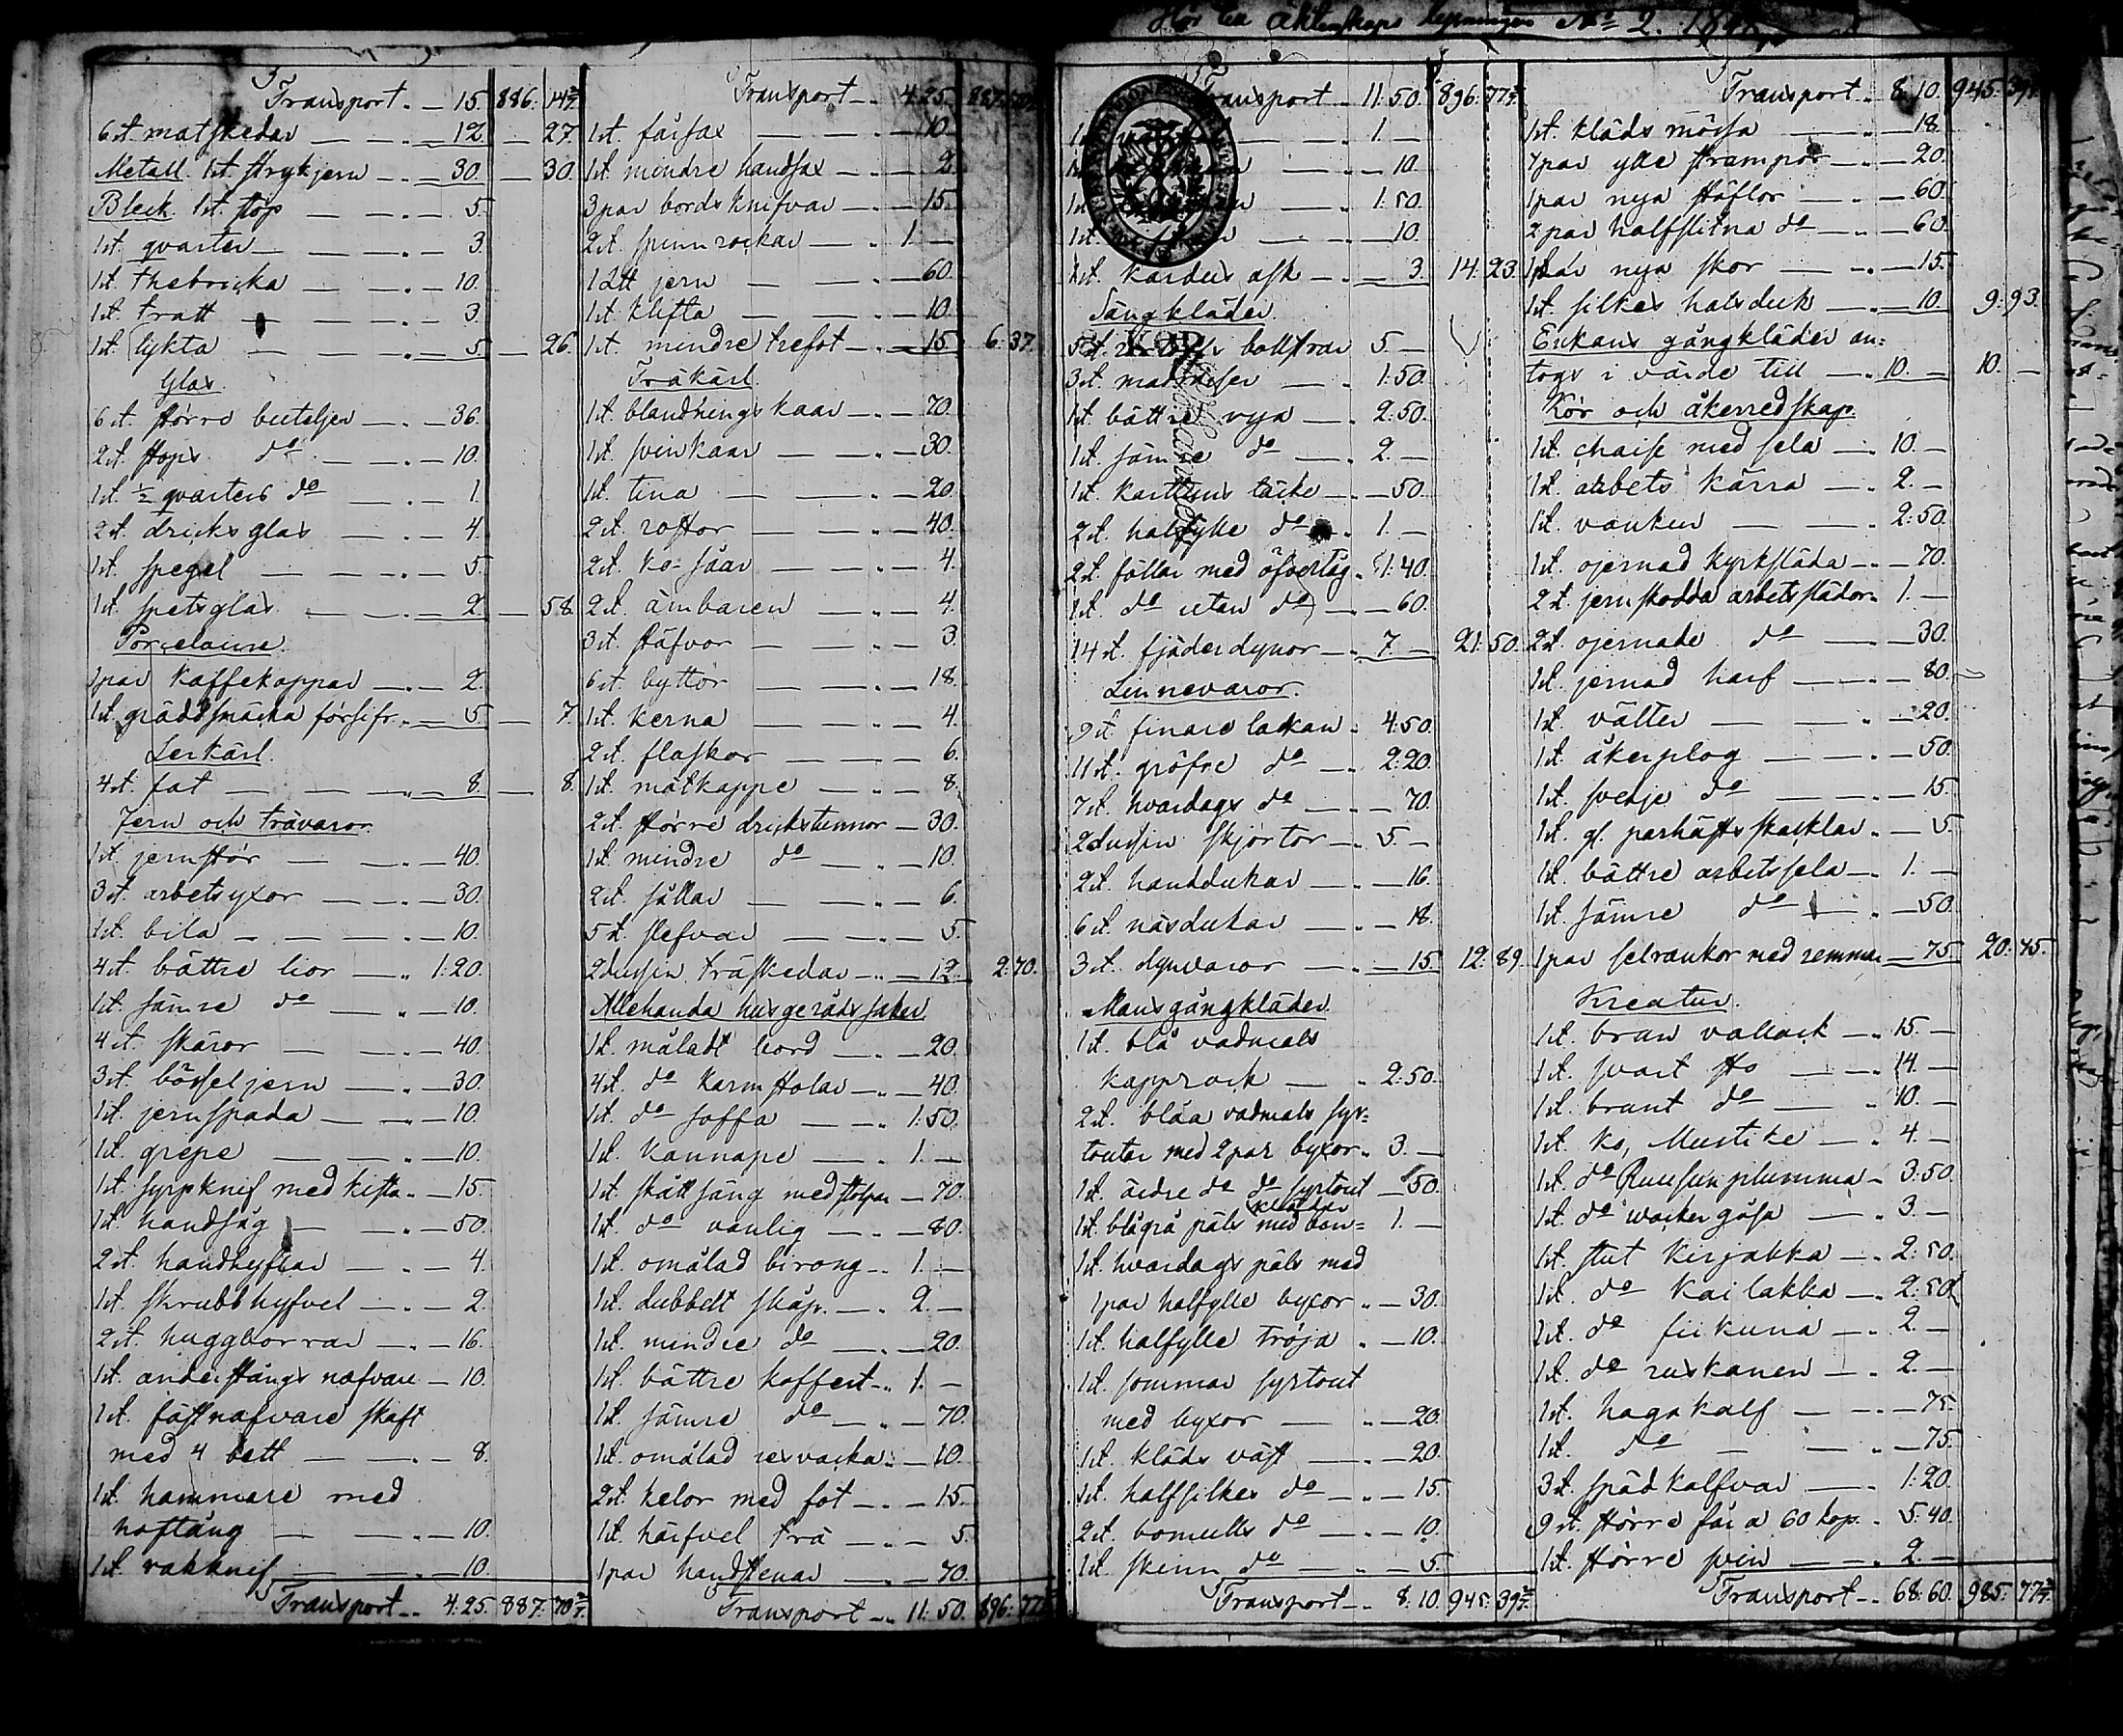 Transport .. — 15. 886: 14 2/7.
6 st. matskedar — — .. — 12. — 27.
Metall. 1 st. strykjern — .. — 30. — 30.
Bleck. 1 st. stop — — .. — 5.
1 st. qvarter — — .. — 3.
1 st. thebricka — — .. — 10.
1 st. tratt — — .. — 3.
1 st. lykta — — .. — 5. — 26.
Glas.
6 st. större buteljer — .. — 36.
2 st. stops do — .. — 10.
1 st. ½ qvarters do — .. — 1.
2 st. dricksglas — .. — 4.
1 st. spegel — — .. — 5.
1 st. spetsglas — .. — 2. — 58.
Porcelaine.
1 par kaffekoppar — .. — 2.
1 st. gräddsnäcka försifr. .. — 5. — 7.
Lerkärl.
4 st. fat — — .. — 8. — 8.
Jern och trävaror.
1 st. jernstör — — .. — 40.
3 st. arbetsyxor — .. — 30.
1 st. bila — — .. — 10.
4 st. bättre lior — .. 1:20.
1 st. sämre do — .. — 10.
4 st. skäror — — .. — 40.
3 st. bösseljern — .. — 30.
1 st. jernspada — .. — 10.
1 st. grepe — — .. — 10.
1 st. syrpknif med kista .. — 15.
1 st. handsåg — .. — 50.
2 st. handhyflar — .. — 4.
1 st. skrubbhyfvel — .. — 2.
2 st. huggborrar — .. — 16.
1 st. anderstångs nafvare — 10.
1 st. fästnafvare skaft
med 4 bett — — .. — 8.
1 st. hammare med
hoftång — — .. — 10.
1 st. rakknif — — .. — 10.
Transport .. 4:25. 887: 70 2/7.
Transport .. 4:25. 887: 70 2/7.
1 st. fårsax — — .. — 10.
1 st. mindre handsax — .. — 2.
3 par bordsknifvar — .. — 15.
2 st. spinnrockar — .. 1. —
12 ℔ jern — — .. — 60.
1 st. klifta — — .. — 10.
1 st. mindre trefot — .. — 15. 6:37.
Träkärl.
1 st. blandningskaar — .. — 70.
1 st. svinkaar — .. — 30.
1 st. tina — — .. — 20.
2 st. rostor — — .. — 40.
2 st. ko-såar — .. — 4.
2 st. ämbaren — .. — 4.
3 st. stäfvor — .. — 3.
6 st. byttor — — .. — 18.
1 st. kerna — — .. — 4.
2 st. flaskor — .. — 6.
1 st. mätkappe — .. — 8.
2 st. större drickstunnor — 30.
1 st. mindre do — .. — 10.
2 st. sållar — — .. — 6.
5 st. slefvar — — .. — 5.
2 dussin träskedar — .. — 12. 2:70.
Allehanda husgerådssaker
1 st. måladt bord — .. — 20.
4 st. do karmstolar — .. — 40.
1 st. do soffa — .. 1:50.
1 st. kannape — .. 1. —
1 st. skåttsäng med stolpar — 70.
1 st. do vanlig — .. — 80.
1 st. omålad birong — .. 1. —
1 st. dubbelt skåp. — .. 2. —
1 st. mindre do — .. — 20.
1 st. bättre koffert — .. 1. —
1 st. sämre do — .. — 70.
1 st. omålad resvacka — .. — 10.
2 st. kelor med fot — .. — 15.
1 st. härfvel trä — .. — 5.
1 par handstenar — .. — 70.
Transport — .. 11:50. 896: 77 2/7.
Hör till Äktenskaps lysningen No 2. 18
Transport .. 11:50. 896: 77 2/7.
1. —
10.
1:50.
1 st. — .. — 10.
1 st. kardus ask — .. — 3. 14:23.
Sängkläder.
bollstrar 5. —
3 st. madrasser — .. 1:50.
1 st. bättre rya — .. 2:50.
1 st. sämre do — .. 2. —
1 st. kattuns täcke — .. — 50.
2 st. halfylle do .. 1. —
2 st. fällar med öfvertåg .. 1:40.
1 st. do utan do — .. — 60.
14 st. fjäderdynor — .. 7. — 21:50.
Linnevaror.
9 st. finare lakan .. 4:50.
11 st. gröfre do — .. 2:20.
7 st. hvardags do — .. — 70.
2 dussin skjortor — .. 5. —
2 st. handdukar — .. — 16.
6 st. näsdukar — .. — 18.
3 st. dynvaror — .. — 15. 12:89.
Mansgångkläder.
1 st. blå vadmals
kapprock — .. 2:50.
2 st. blåa vadmals syr=
touter med 2 par byxor .. 3. —
1 st. äldre do do syrtout — 50.
1 st. blågrå päls med 1. —
1 st. hvardags päls med
1 par halfylle byxor .. — 30.
1 st. halfylle tröja .. — 10.
1 st. sommar syrtout
med byxor — .. — 20.
1 st. kläds väst — .. — 20.
1 st. halfsilkes do — .. — 15.
2 st. bomulls do — .. — 10.
1 st. skinn do — .. — 5.
Transport — .. 8:10. 945: 39 2/7.
Transport .. 8:10. 945: 39 2/7.
1 st. kläds mössa — .. — 18.
7 par ylle strumpor — .. — 20.
1 par nya stöflor — .. — 60.
2 par halfslitna do — .. — 60.
1 par nya skor — .. — 15.
1 st. silkes halsduk — .. — 10. 9:93.
Enkans gångkläder an=
togs i värde till — .. 10. — 10. —
Kör och åkerredskap.
1 st. chaise med sela — .. 10. —
1 st. arbets kärra — .. 2. —
1 st. vanken — — .. 2:50.
1 st. ojernad kyrksläda — .. — 70.
2 st. jernskodda arbetssläder .. 1. —
2 st. ojernade do — .. — 30.
1 st. jernad harf — .. — 80.
1 st. välter — .. — 20.
1 st. åkerplog — .. — 50.
1 st. svedje do — .. — 15.
1 st. gl. parhästs skacklar .. — 5.
1 st. bättre arbetssela — .. 1. —
1 st. sämre do — .. — 50.
1 par selrankor med remmar — 75. 20:45.
Kreatur.
1 st. brun vallack — .. 15. —
1 st. svart sto — .. 14. —
1 st. brunt do — .. 10. —
1 st. ko, Mustike — .. 4. —
1 st. do Ruusunplumma — 3:50.
1 st. do wacker gåsa — .. 3. —
1 st. stut Kirjakka — .. 2:50.
1 st. do Kailakka — .. 2:50.
1 st. do fiikuna — .. 2. —
1 st. do ruskanen — .. 2. —
1 st. hagakalf — .. — 75.
1 st. do — .. — 75.
3 st. spädkalfvar — .. 1:20.
9 st. större får a 60 kop. .. 5:40.
1 st. större svin — .. 2. —
Transport .. 68:60. 985: 77 2/7.